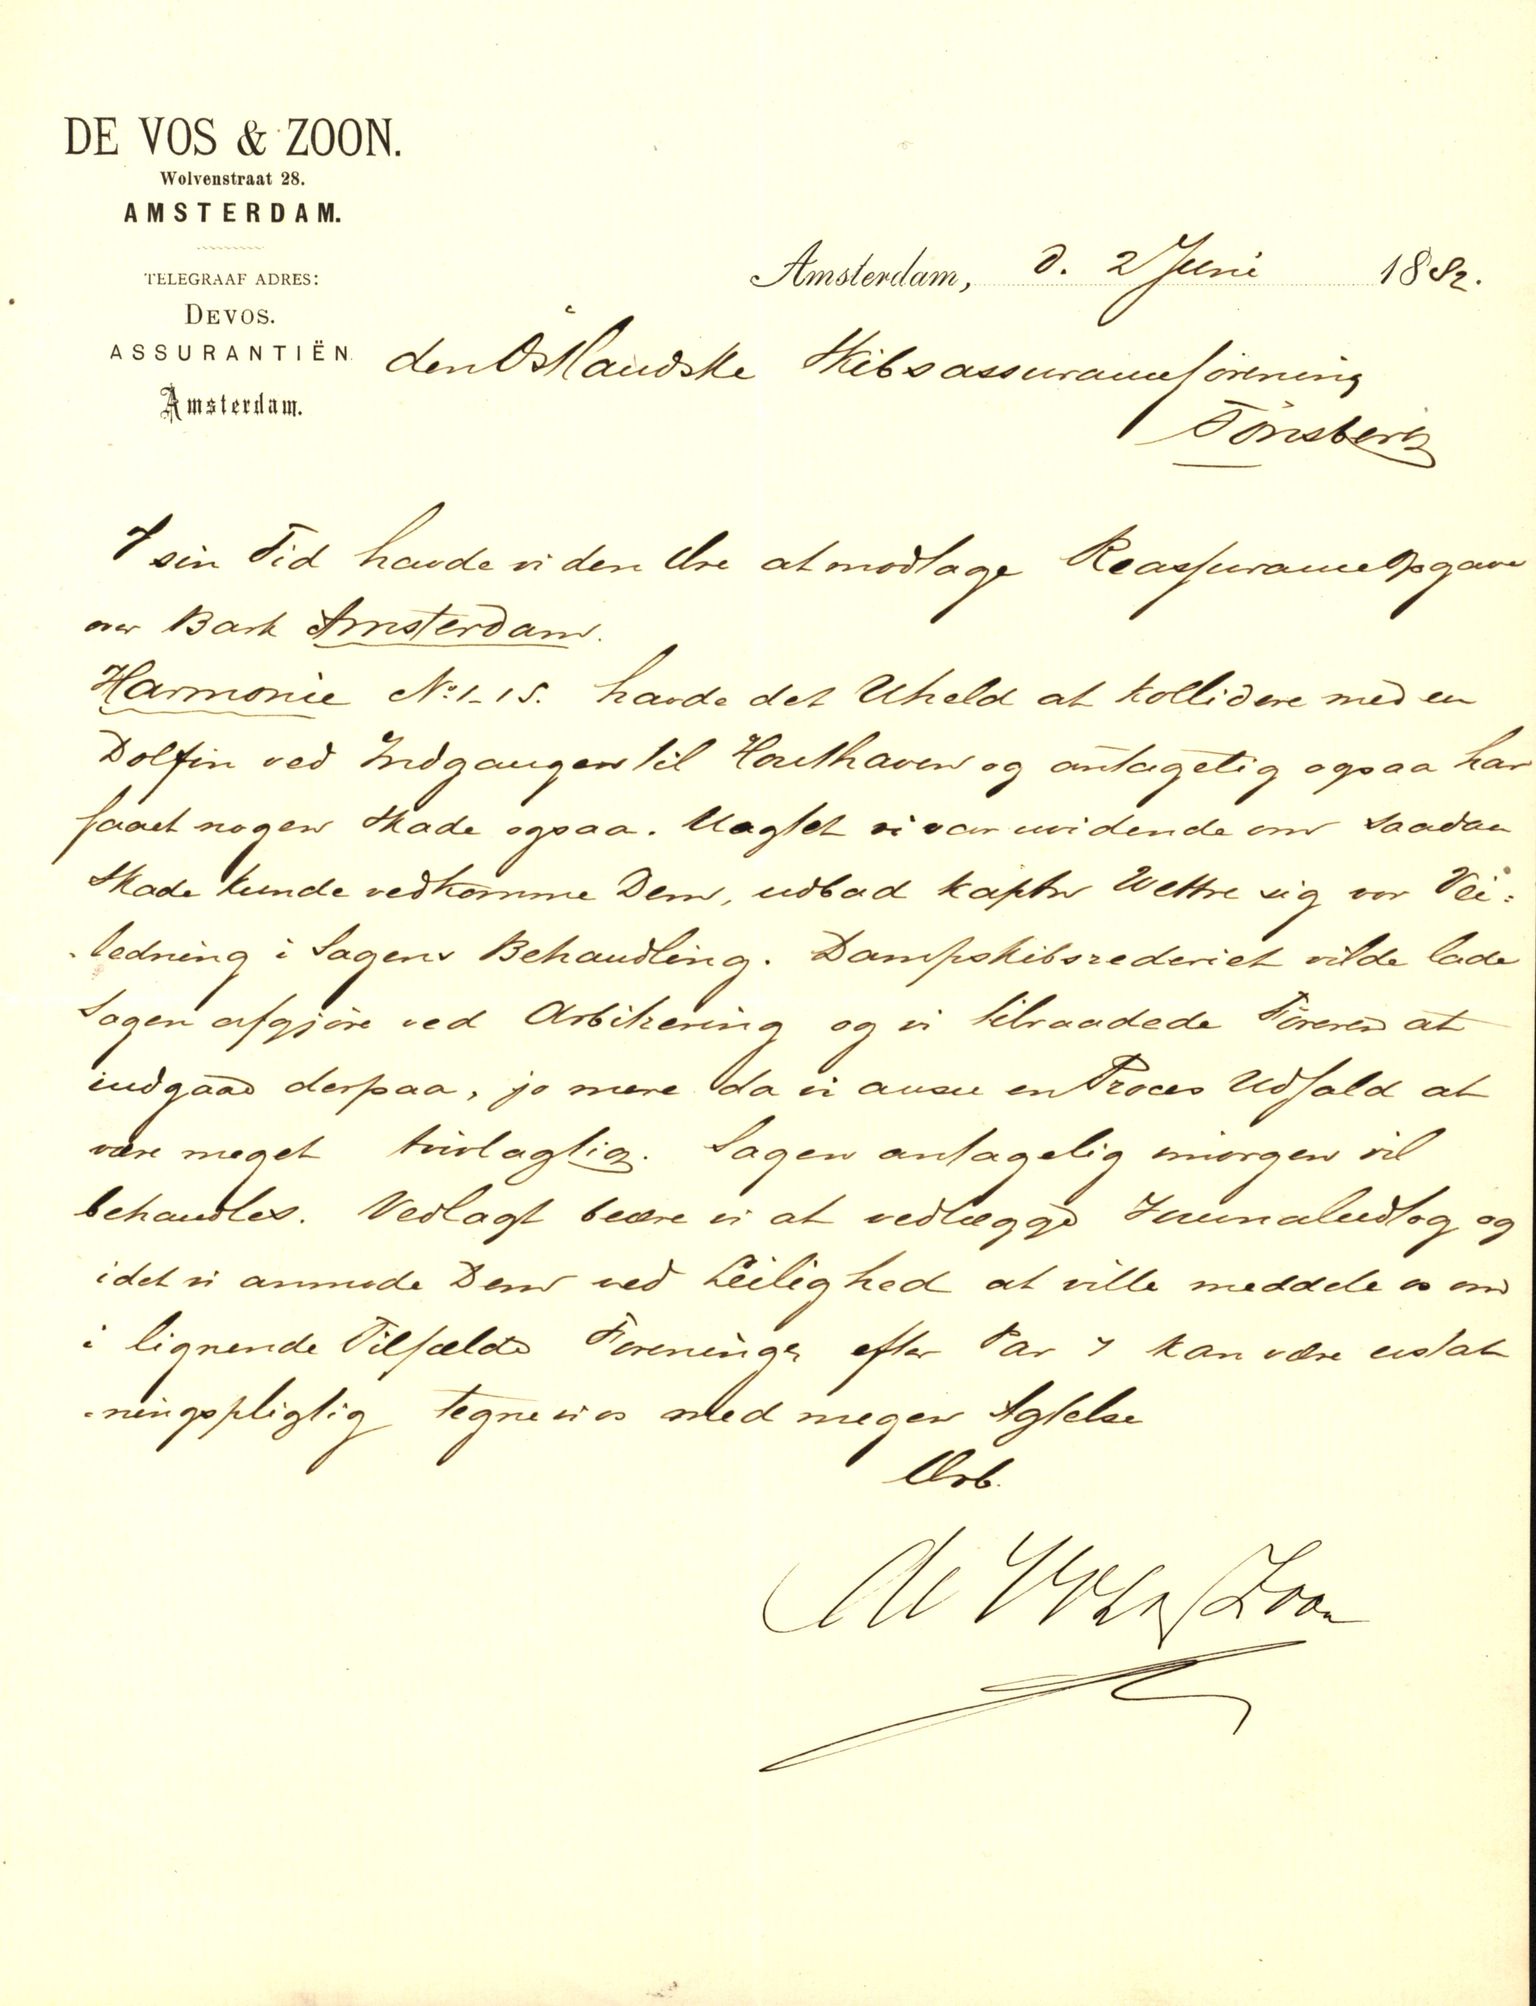 DE VOS & ZOON.
Wolvenstraat 28.
AMSTERDAM.
TELEGRAAF ADRES:
DEVOS.
ASSURANTIËN
Amsterdam.
Amsterdam, d. 2 Juni 1882.
den Östlandske Skibsassuranceforening
Tönsberg
I sin Tid havde vi den Ære at modtage Reassurance Opgave
over Bark Amsterdam.
Harmonie No 1-15. havde det Uheld at kollidere med en
Dolfin ved Indgangen til Houthaven og antagetig ogsaa har
faaet nogen Skade ogsaa. Uagtet vi var uvidende om saadan
Skade kunde vedkomme Dem, udbad kaptn Wettre sig vor Vei=
-ledning i Sagens Behandling. Dampskibsrederiet vilde lade
Sagen afgjöre ved Arbitrering og vi tilraadede Föreren at
indgaae derpaa, jo mere da vi ansee en Proces Udfald at
være meget tvivlagtig. Sagen antagelig imorgen vil
behandles. Vedlagt beære vi at vedlægge Journaludtog og
idet vi anmode Dem ved Leilighed at ville meddele os om
i lignende Tilfælde Foreninge efter Par 7 kan være erstat
-ningspligtig tegne vi os med megen Agtelse
Ærb.
de Vos & Zoon